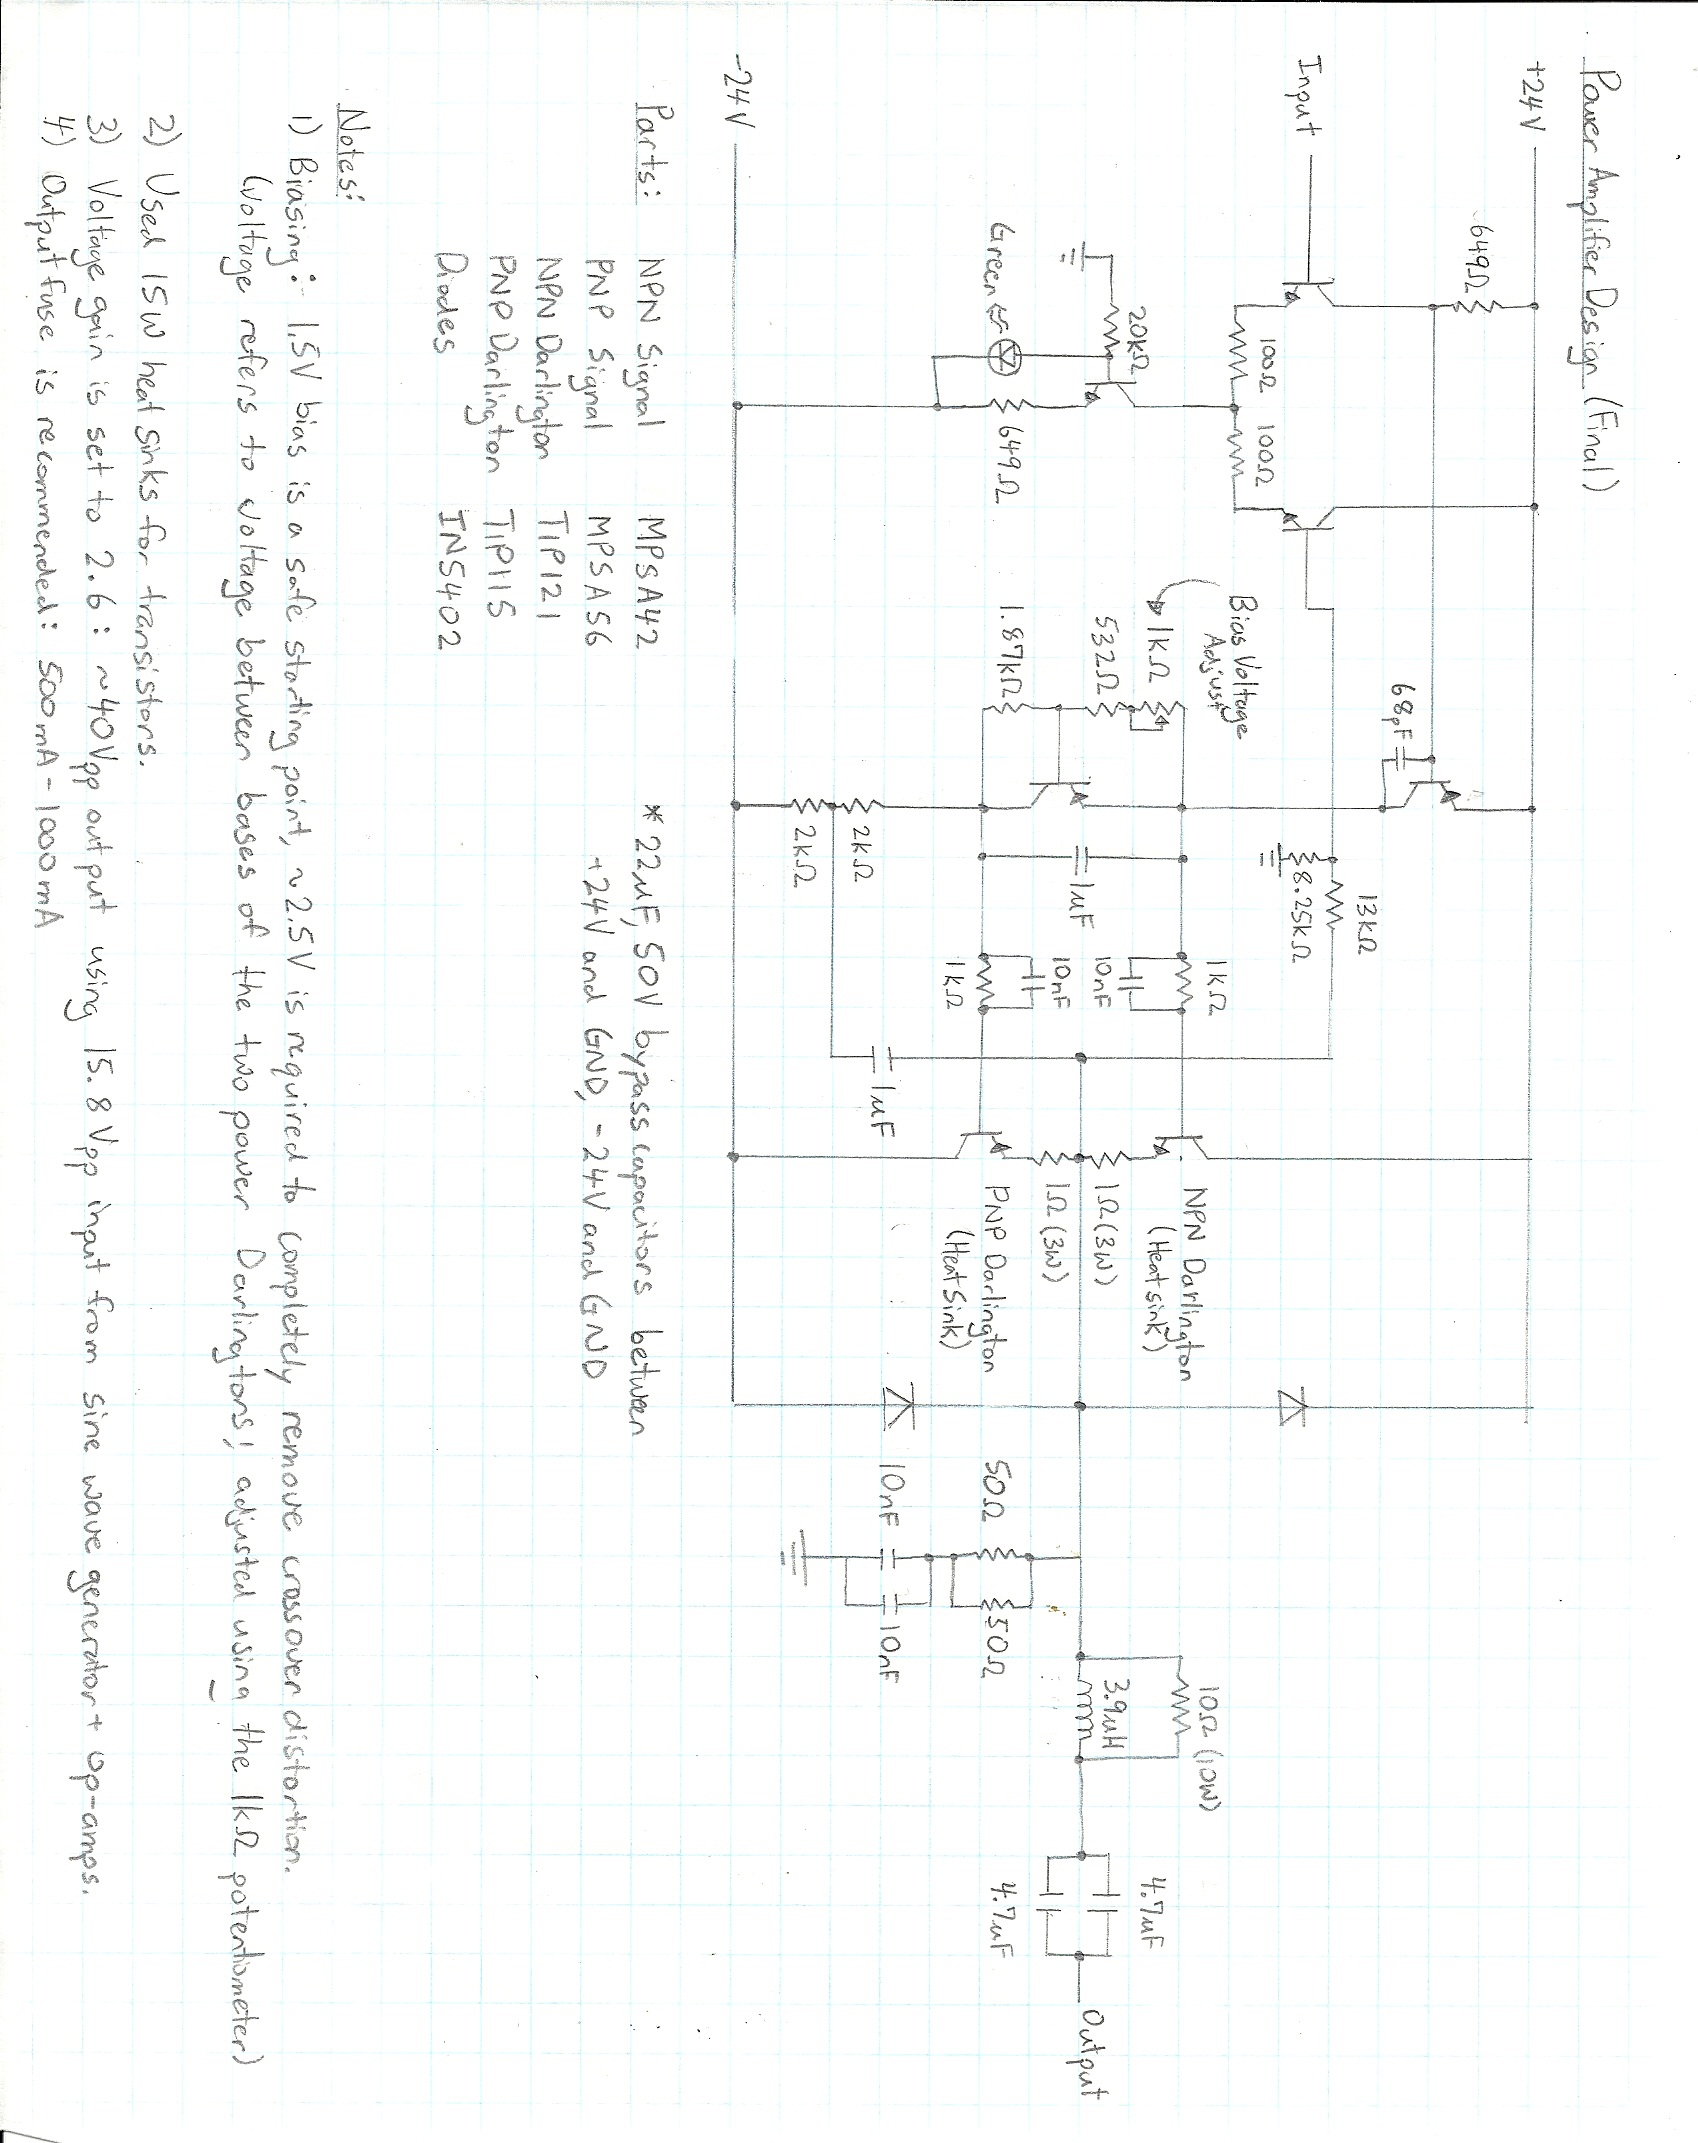 Power Amplifier Design (Final)
+24V
649Ω
Input
100Ω
100Ω
20kΩ
Green
649Ω
-24V
68pF
Bias Voltage
Adjust
1kΩ
532Ω
1.87kΩ
13kΩ
8.25kΩ
1μF
1kΩ
10nF
10nF
1kΩ
2kΩ
2kΩ
1μF
NPN Darlington
(Heatsink)
1Ω(3W)
1Ω(3W)
PNP Darlington
(HeatSink)
50Ω
50Ω
10nF
10nF
10Ω (10W)
3.9μH
4.7μF
4.7μF
Output
Parts: NPN Signal MPSA42
PNP Signal MPSA56
NPN Darlington TIP121
PNP Darlington TIP115
Diodes IN5402
* 22μF, 50V bypass capacitors between
+24V and GND, -24V and GND
Notes:
1) Biasing: 1.5V bias is a safe starting point, ~2.5V is required to completely remove crossover distortion.
(Voltage refers to voltage between bases of the two power Darlingtons; adjusted using the 1kΩ potentiometer)
2) Used 15W heat sinks for transistors.
3) Voltage gain is set to 2.6: ~40Vpp output using 15.8Vpp input from sine wave generator + op-amps.
4) Output fuse is recommended: 500mA-1000mA